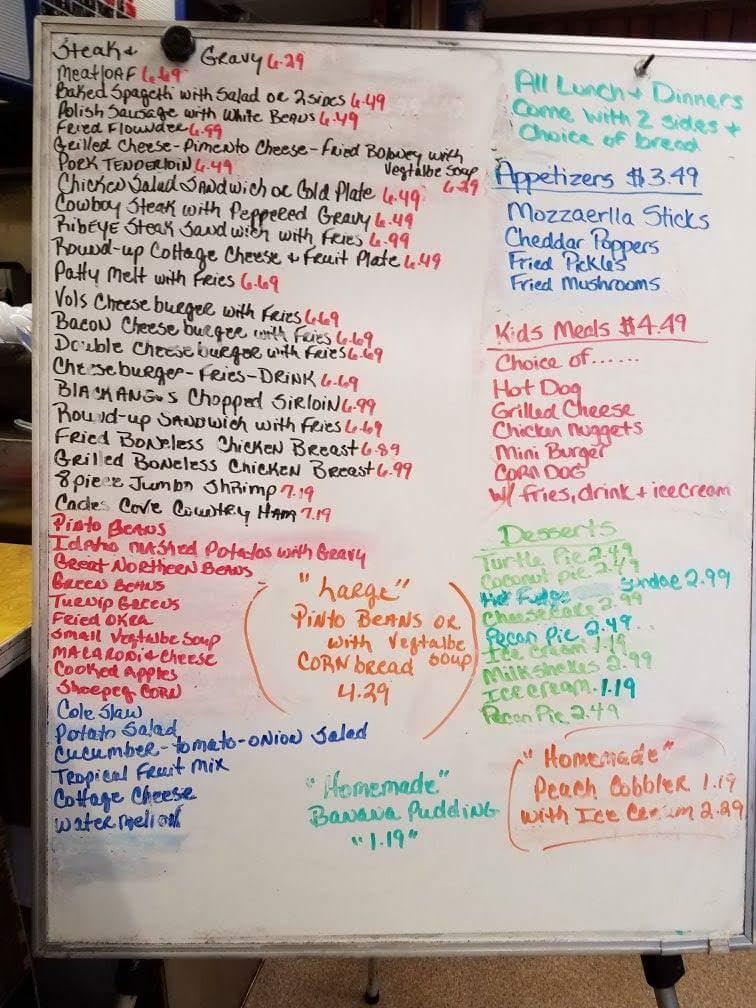 Steak + Gravy 6.29
MeatloAF 6.69
Baked Spagetti with Salad or 2 sides 6.49
Polish Sausage with White Beans 6.49
Fried Flounder 6.99
Grilled Cheese-Pimento Cheese-Fried Bolowey with
Vegtalbe Soup
6.29
Pork Tenderloin 6.49
Chicken Salad Sandwich or Cold Plate 6.49
Cowboy Steak with Peppered Gravy 6.49
RibEye Steak Sandwich with Fries 6.99
Round-up Cottage Cheese + Fruit Plate 6.49
Patty Melt with Fries 6.69
Vols Cheeseburger with Fries 6.69
Bacon Cheese burger with Fries 6.69
Double Cheeseburger with Fries 6.69
Cheeseburger-Fries-Drink 6.69
Black Angus Chopped Sirloin 6.99
Round-up Sandwich with Fries 6.69
Fried Boneless Chicken Breast 6.89
Grilled Boneless Chicken Breast 6.99
8 piece Jumbo Shrimp 7.19
Cades Cove Country Ham 7.19
Pinto Beans
Idaho mashed Potatos with Gravy
Great Northern Beans
Green Beans
Turnip Greens
Fried Okra
Small Vegtalbe Soup
Macaroni + Cheese
Cooked Apples
Shoepeg Corn
Cole Slaw
Potato Salad
Cucumber-tomato-onion Salad
Tropical Fruit Mix
Cottage Cheese
Watermelion
"Large"
Pinto Beans or
with Vegtalbe
Cornbread Soup
4.29
"Homemade"
Banana Pudding
"1.19"
All Lunch + Dinners
Come with 2 sides +
Choice of bread
Appetizers $3.49
Mozzaerlla Sticks
Cheddar Poppers
Fried Pickles
Fried Mushrooms
Kids Meals $4.49
Choice of......
Hot Dog
Grilled Cheese
Chicken Nuggets
Mini Burger
Corn Dog
w/ fries, drink + ice cream
Desserts
Turtle Pie 2.49
Coconut pie 2.49
Hot Fudge Sundae 2.99
Cheesecake 2.99
Pecan Pie 2.49
Ice cream 1.19
Milkshakes 2.99
Ice cream 1.19
Pecan Pie 2.49
"Homemade"
Peach Cobbler 1.19
with Ice Cream 2.29